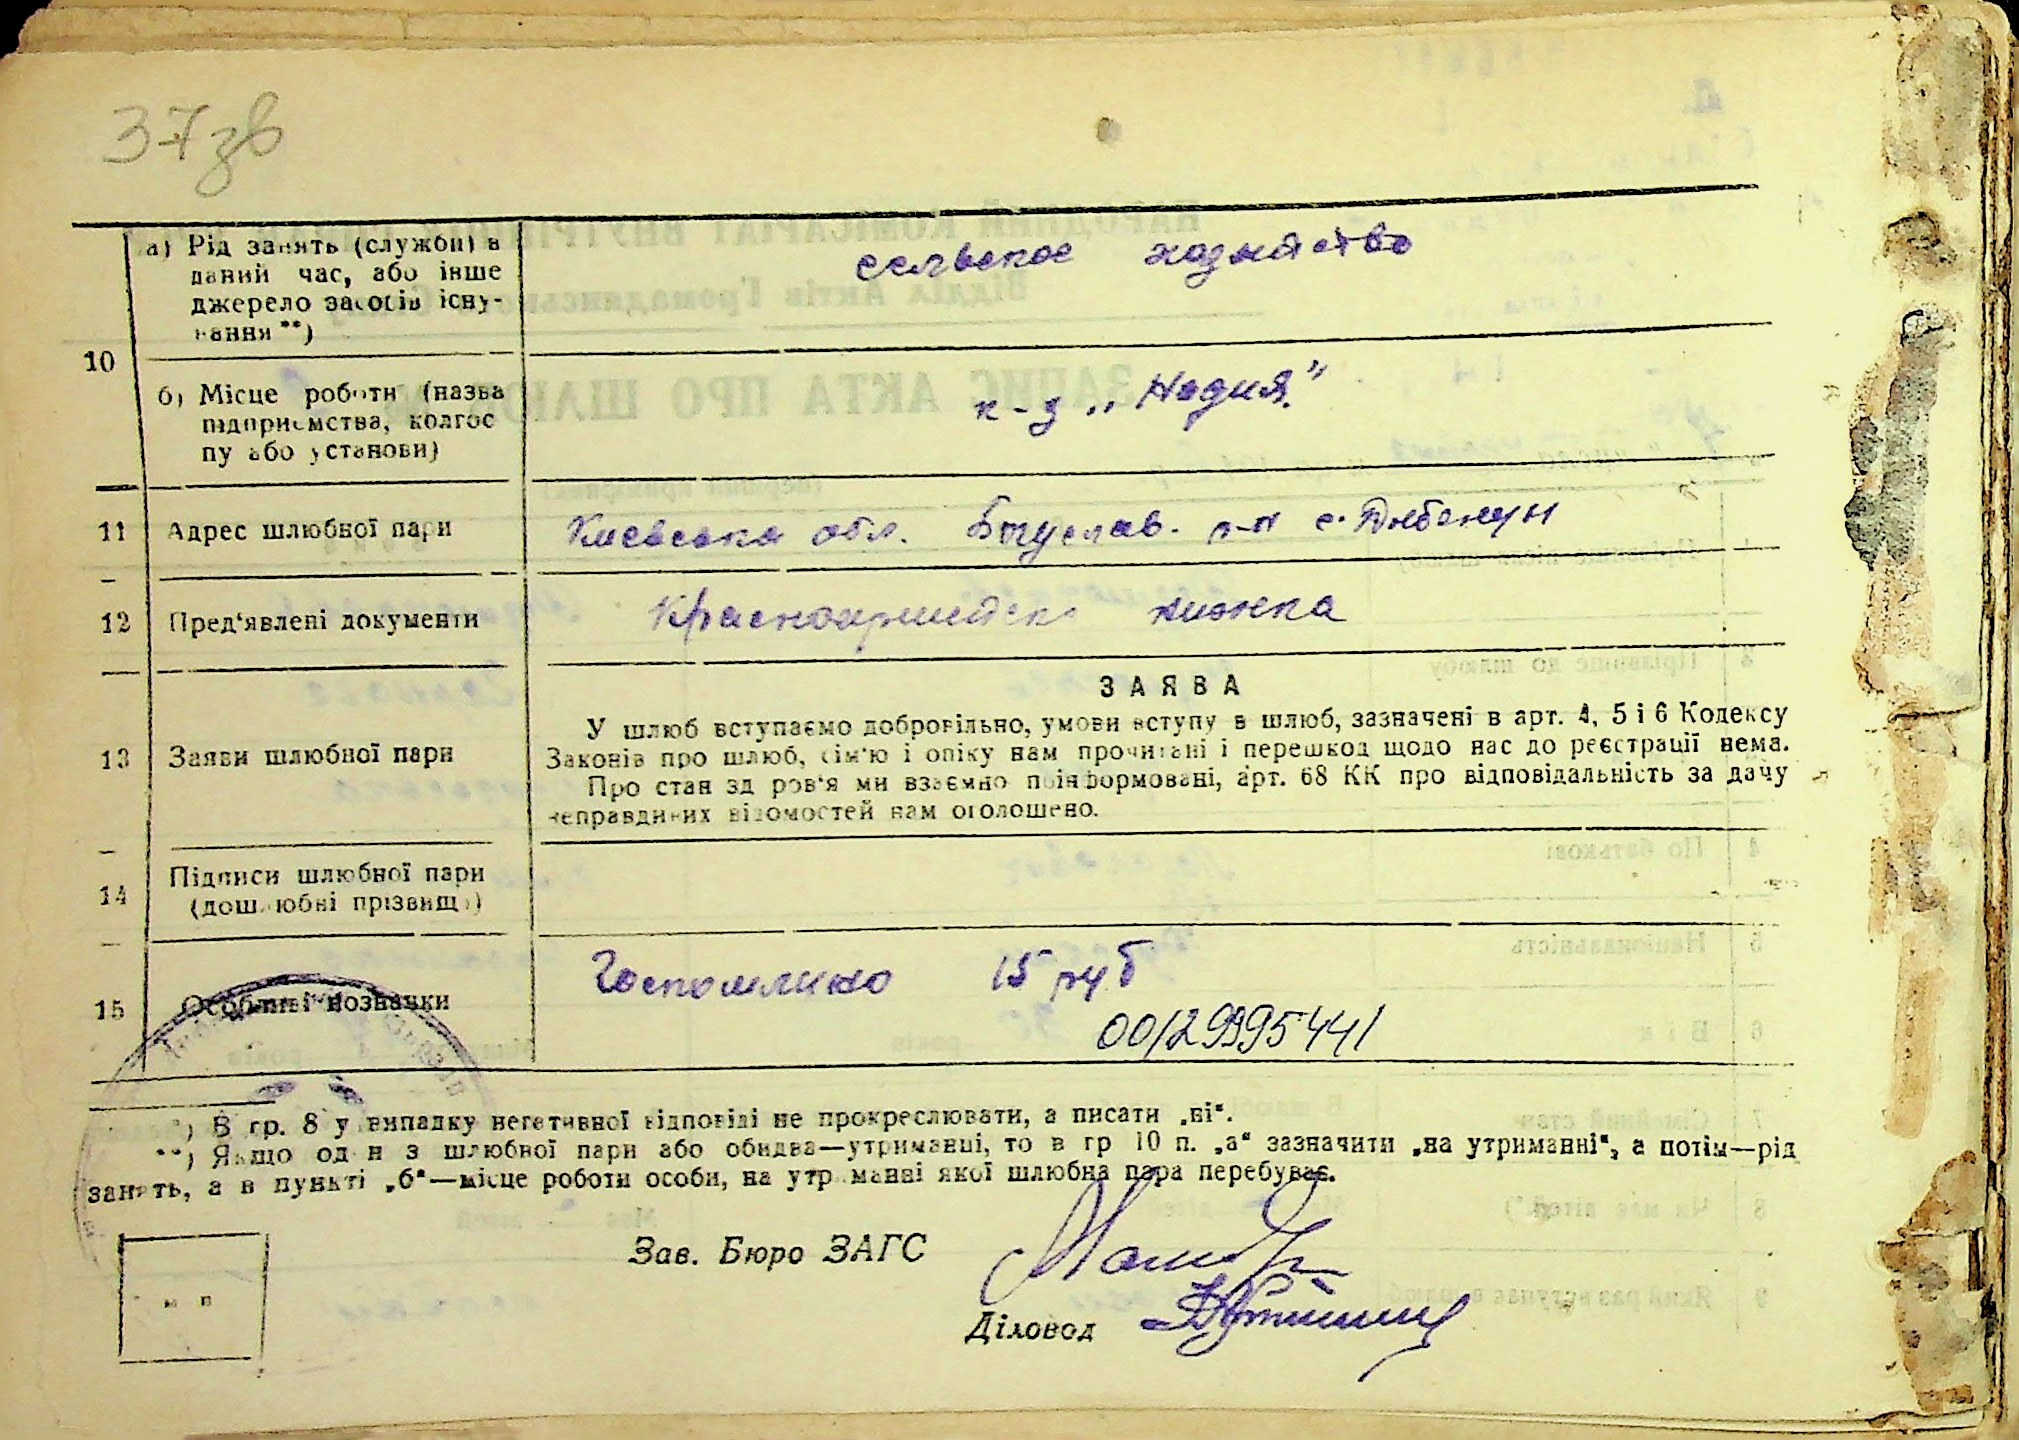 37зв
а) Рід занять (служби) в
даний час, або інше
джерело засобів існу-
вання **)
сельское хозяйство
10
б) Місце роботи (назва
підприємства, колгос
пу або установи)
к-з „Надия"
11 Адрес шлюбної пари
Киевська обл. Богуслав. р-н с. Дыбенцы
12 Пред'явлені документи
Красноармейска книжка
ЗАЯВА
13 Заяви шлюбної пари
У шлюб вступаємо добровільно, умови вступу в шлюб, зазначені в арт. 4, 5 і 6 Кодексу
Законів про шлюб, сім'ю і опіку нам прочитані і перешкод щодо нас до реєстрації нема.
Про стан здоров'я ми взаємно поінформовані, арт. 68 КК про відповідальність за дачу
неправдивих відомостей нам оголошено.
14 Підписи шлюбної пари
(дошлюбні прізвища)
15 Особливі позначки
Госпошлино 15 руб
00129995441
*) В гр. 8 у випадку негативної відповіді не прокреслювати, а писати „ні".
**) Якщо один з шлюбної пари або обидва—утриманці, то в гр 10 п. „а" зазначити „на утриманні", а потім—рід
занять, а в пункті „б"—місце роботи особи, на утриманні якої шлюбна пара перебуває.
Зав. Бюро ЗАГС
Діловод
м п